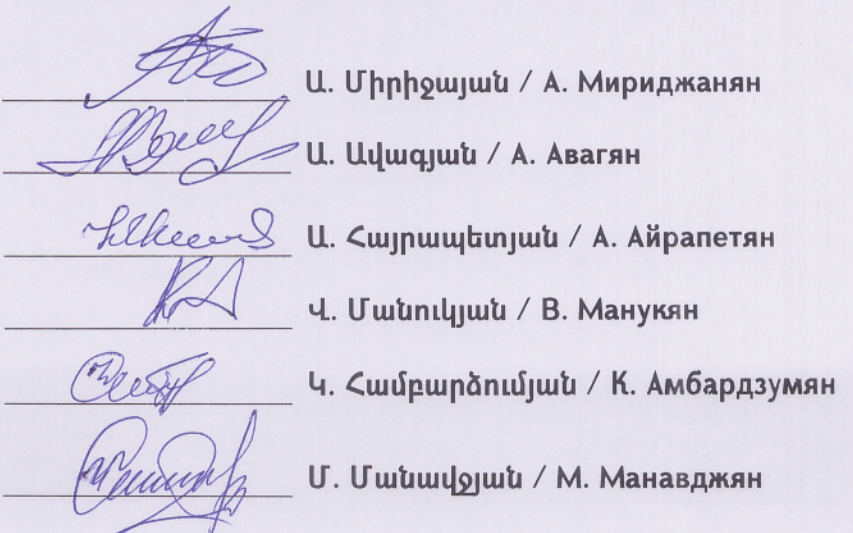 Ա. Միրիջայան / А. Мириджанян
Ա. Ավագյան / А. Авагян
Ա. Հայրապետյան / А. Айрапетян
Վ. Մանուկյան / В. Манукян
Կ. Համբարձումյան / К. Амбардзумян
Մ. Մանավջյան / М. Манавджян